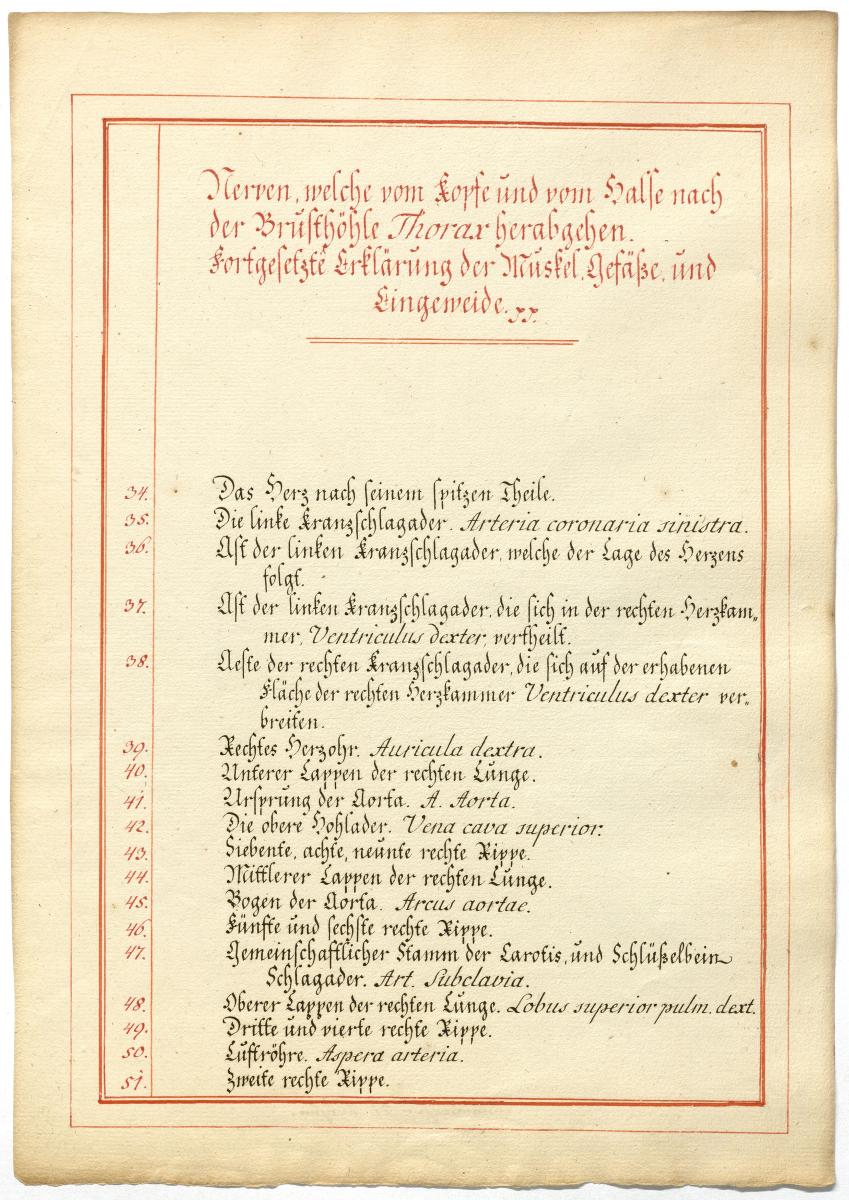 Nerven, welche vom Kopfe und vom Halse nach
der Brusthöhle Thorax herabgehen.
Fortgesetzte Erklärung der Muskel, Gefäße, und
Eingeweide.
34. Das Herz nach seinem spitzen Theile.
35. Die linke Kranzschlagader. Arteria coronaria sinistra.
36. Ast der linken Kranzschlagader, welche der Lage des Herzens
folgt.
37. Ast der linken Kranzschlagader, die sich in der rechten Herzkam„
mer, Ventriculus dexter, vertheilt.
38. Aeste der rechten Kranzschlagader, die sich auf der erhabenen
Fläche der rechten Herzkammer Ventriculus dexter ver„
breiten.
39. Rechtes Herzohr. Auricula dextra.
40. Unterer Lappen der rechten Lunge.
41. Ursprung der Aorta. A. Aorta.
42. Die obere Hohlader. Vena cava superior.
43. Siebente, achte, neunte rechte Rippe.
44. Mittlerer Lappen der rechten Lunge.
45. Bogen der Aorta. Arcus aortae.
46. Fünfte und sechste rechte Rippe.
47. Gemeinschaftlicher Stamm der Carotis, und Schlüßelbein
Schlagader. Art. Subclavia.
48. Oberer Lappen der rechten Lunge. Lobus superior pulm. dext.
49. Dritte und vierte rechte Rippe.
50. Luftröhre. Aspera arteria.
51. Zweite rechte Rippe.